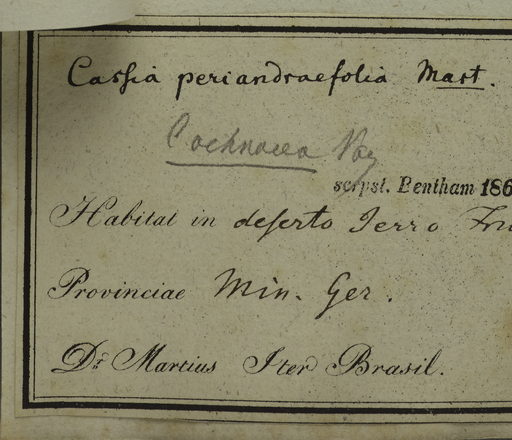 Cassia periandraefolia Mart.
Cochnacea Vog
scrpst. Bentham 186
Habitat in deserto Serro Fru
Provinciae Min. Ger.
Dr. Martius Iter Brasil.